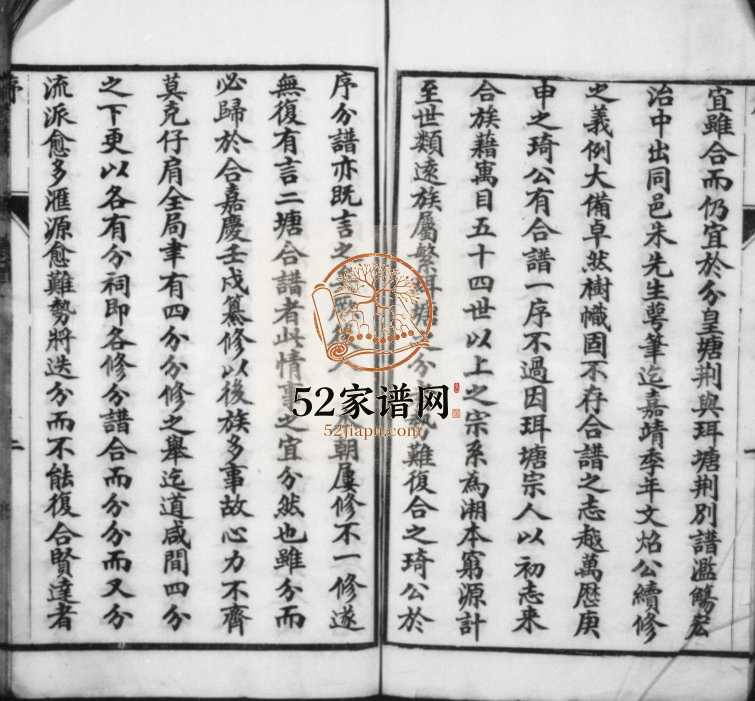 宜雖合而仍宜於分皇塘荆與珥塘荆別譜濫觴宏
治中出同邑朱先生萼筆迄嘉靖季年文焰公續修
之義例大備卓然樹幟固不存合譜之志越萬厯庚
申之琦公有合譜一序不過因珥塘宗人以初志来
合族藉寓目五十四世以上之宗系為溯本窮源計
至世類遠族屬繁珥塘之分 難復合之琦公於
序分譜亦既言之 厥後 朝屢修不一修遂
無復有言二塘合譜者此情事之宜分然也雖分而
必歸於合嘉慶壬戌纂修以後族多事故心力不齊
莫克仔肩全局聿有四分分修之舉迄道咸間四分
之下更以各有分祠即各修分譜合而分分而又分
流派愈多滙源愈難勢將迭分而不能復合賢達者
序
二
52家谱网
52jiapu.com